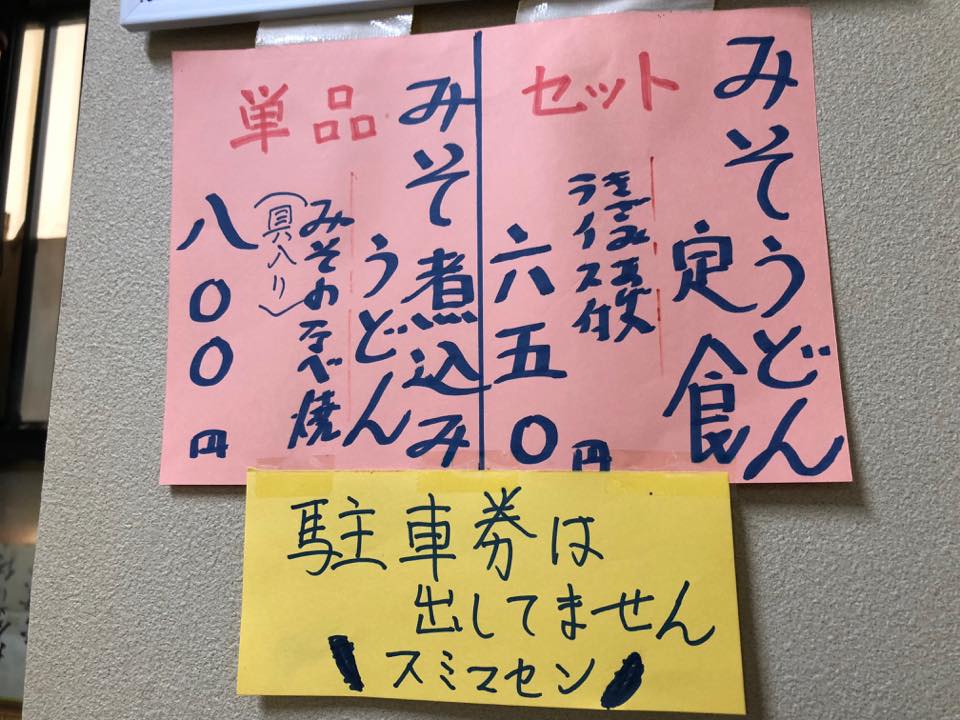 セット
みそうどん
定食
きざみ
ライス付
六五〇円
単品
みそ煮込み
うどん
みそのなべ焼
(具入り)
八〇〇円
駐車券は
出してません
スミマセン